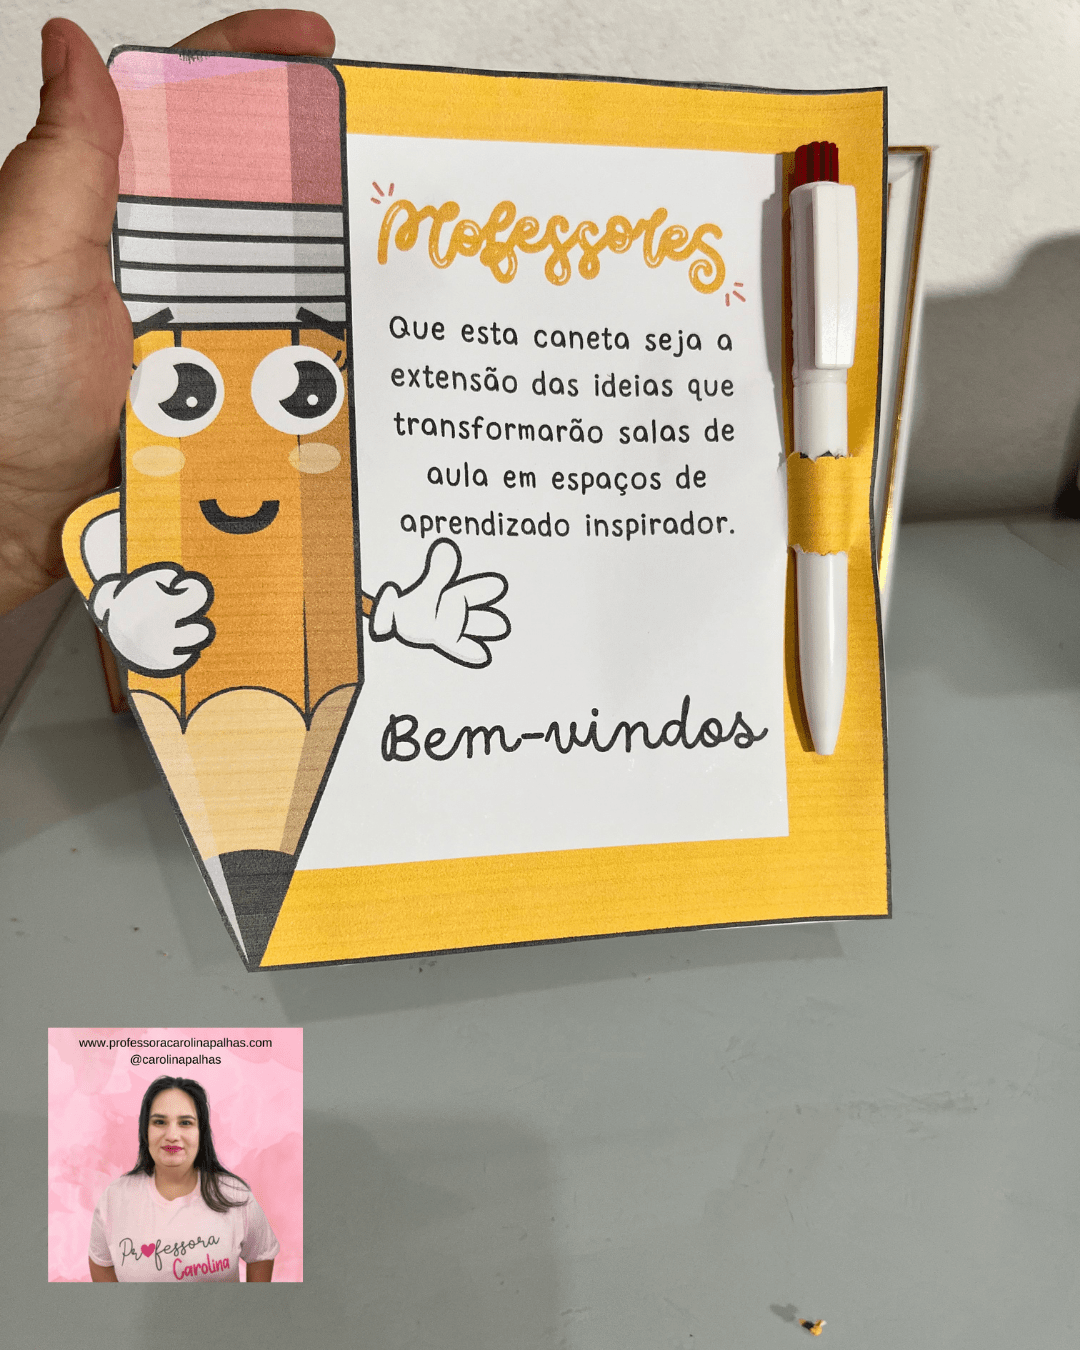 Professores
Que esta caneta seja a
extensão das ideias que
transformarão salas de
aula em espaços de
aprendizado inspirador.
Bem-vindos
www.professoracarolinapalhas.com
@carolinapalhas
Professora
Carolina